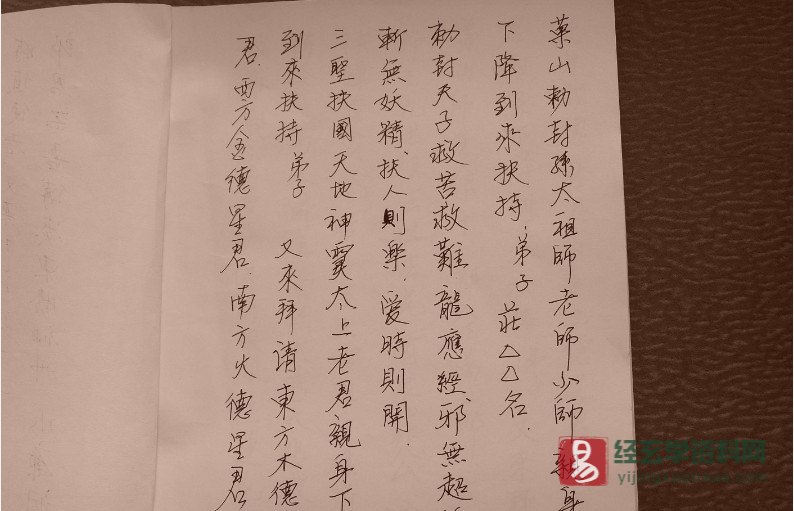 葉山勅封孫太祖師老師少師親身
下降到來扶持弟子莊△△名.
勅封天子救苦救難龍應經邪無超
斬無妖精扶人則樂.愛時則開.
三聖扶國天地神靈太上老君親身下
到來扶持弟子 又來拜請東方木德
君.西方金德星君.南方火德星君
易
经玄学资料网